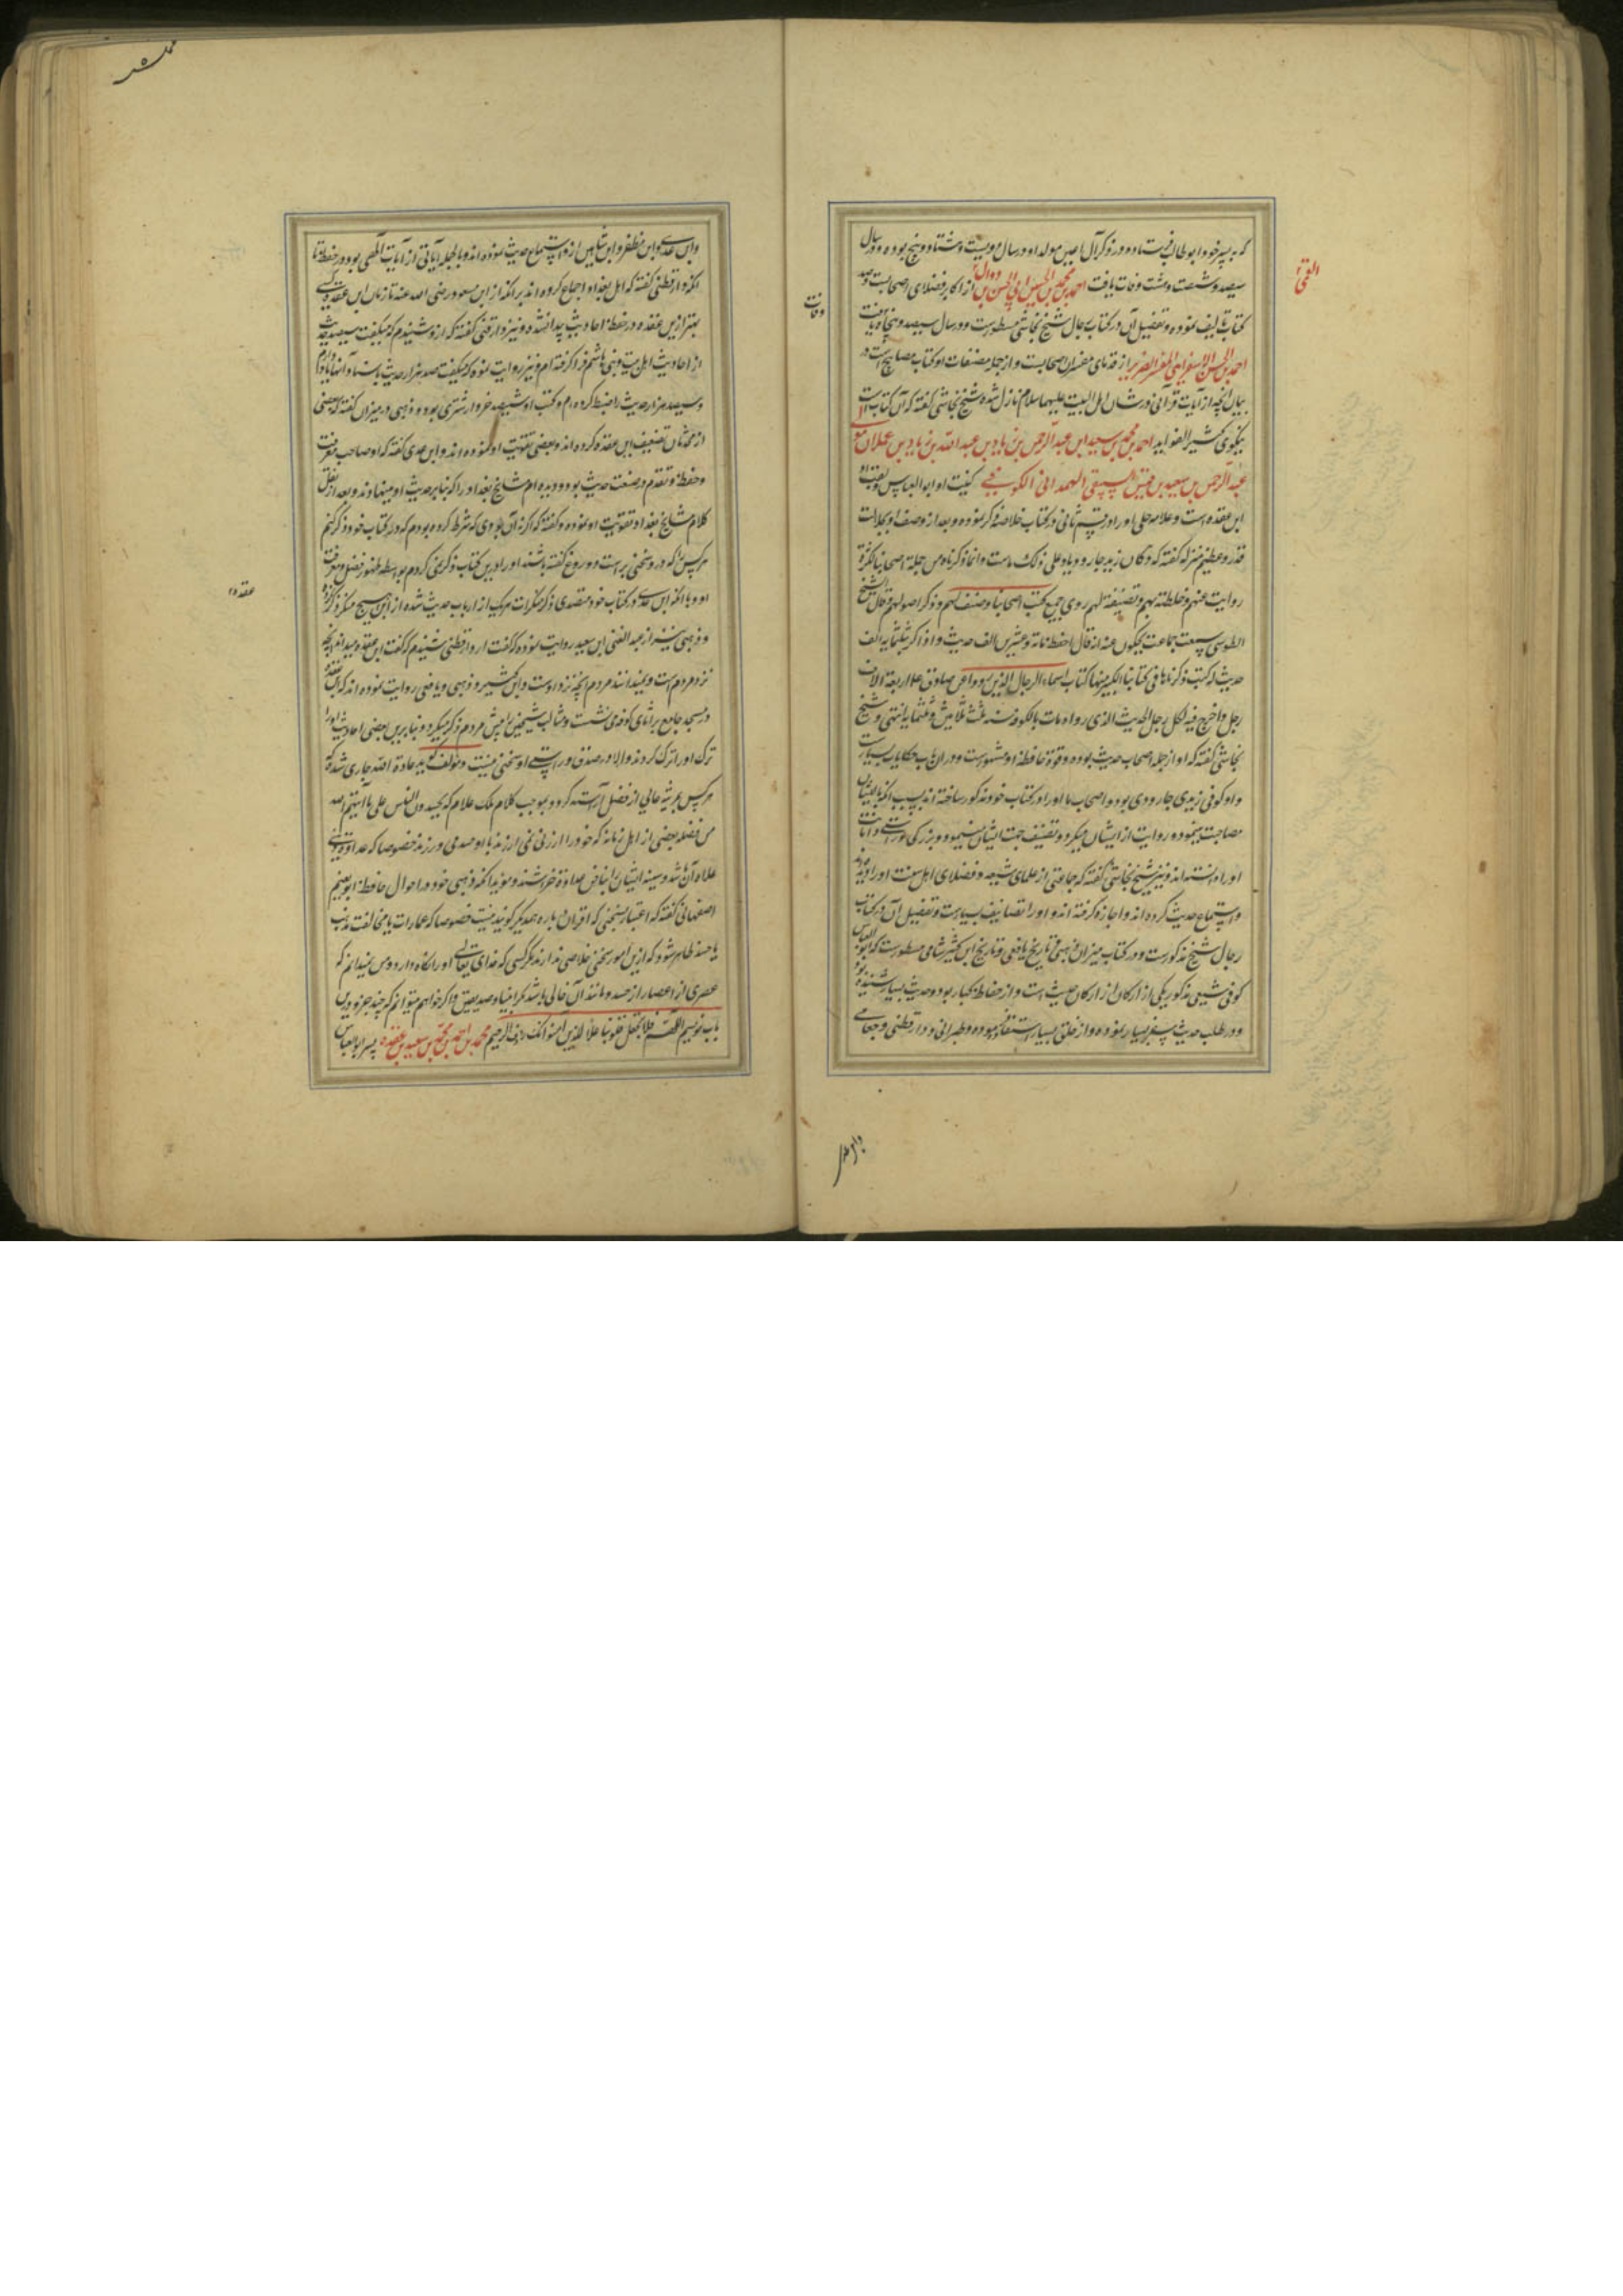 که به پسر خود ابو طالب فرستاده در ذکر آل اعین مولد او در سال دویست و هشتاد و پنج بوده و در سال
سیصد و شصت و هشت وفات یافت احمد بن محمد بن الحسین بن الحسن بن دوال از اکابر فضلای اصحابست و صد
القمی
کتاب تالیف نموده و تفصیل آن در کتاب رجال شیخ نجاشی مسطورست و در سال سیصد و پنجاه یافت
وفات
احمد بن الحسن الاسفراینی المفسر الضریر از قدمای مفسران اصحابست و از جمله مصنفات او کتاب مصابیح است در
بیان آنچه از آیات قرآنی در شان اهل البیت علیهما سلام نازل شده شیخ نجاشی گفته که آن کتابیست
نیکوی کثیر الفواید احمد بن محمد بن سعید بن عبد الرحمن بن زیاد بن عبد الله بن زیاد بن عجلان مولی
عبد الرحمن بن سعید بن قیس السبیعی الهمدانی الکوفی کنیت او ابو العباس و لقب او
ابن عقده است و علامه حلی او را در قسم ثانی در کتاب خلاصه ذکر نموده و بعد از وصف او بجلالت
قدر و عظیم منزله گفته که و کان زیدیا جارودیا و علی ذلک مات و انما ذکرناه من جملة اصحابنا لکثرة
روایته عنهم و خلطته بهم و تصنیفه لهم روی جمیع کتب اصحابنا و صنف لهم و ذکر اصولهم قال الشیخ
الطوسی سمعت جماعة یحکون عنه انه قال احفظ مائة و عشرین الف حدیث و اذاکر بثلثمایه الف
حدیث له کتب ذکرناها فی کتابنا الکبیر منها کتاب اسماء الرجال الذین رووا عن صادق ع اربعة الاف
رجل و اخرج فیه لکل رجل الحدیث الذی رواه مات بالکوفه سنه ثلث و ثلاثین و ثلثمایه انتهی و شیخ
نجاشی گفته که او از جمله اصحاب حدیث بوده و قوة حافظه او مشهورست و در ان باب حکایات بسیارست
و او کوفی زیدی جارودی بود و اصحاب ما او را در کتاب خود مذکور ساخته اند بسبب انکه با ایشان
مصاحبت مینمود و روایت از ایشان میکرد و تصنیف جهت ایشان مینمود و بزرگی و راستی و امانت
او را دانسته اند و نیز شیخ نجاشی گفته که جماعتی از علمای شیعه و فضلای اهل سنت او را دیده بودند
و استماع حدیث کرده اند و اجازه گرفته اند و او را تصانیف بسیارست و تفصیل آن در کتاب
رجال شیخ مذکورست و در کتاب میزان ذهبی و تاریخ یافعی و تاریخ ابن کثیر شامی مسطورست که ابو العباس
کوفی شیعی مذکور یکی از ارکان از ارکان حدیث است و از حفاظ کبار بود و حدیث بسیار شنیده بود
و در طلب حدیث سفر بسیار نموده و از خلق بسیار استفاده نموده و طبرانی و دارقطنی و جعابی
و ابن عدی
و ابن عدی و ابن مظفر و ابن شاهین از او استماع حدیث نموده اند و بالجمله آیاتی از آیات الهی بود در حفظ تا
انکه دارقطنی گفته که اهل بغداد اجماع کرده اند بر انکه از ابن مسعود رضی الله عنه تا زمان ابن عقده کسی
بهتر از ابن عقده در حفظ احادیث پیدا نشده و نیز دارقطنی گفته که از او شنیدم که میگفت سیصد حدیث
از احادیث اهل بیت و بنی هاشم فرا گرفته ام و نیز روایت نموده که میگفت صد هزار حدیث باسناد آنها یاد دارم
و سیصد هزار حدیث را ضبط کرده ام و کتب او ششصد خروار شتری بود و ذهبی در میزان گفته که بعضی
از محدثان تضعیف ابن عقده کرده اند و بعضی تقویت او نموده اند و ابن عدی گفته که او صاحب معرفت
و حفظ و تقدم در صنعت حدیث بود و دیده ام مشایخ بغداد را که بنابر حدیث او مینهادند و بعد از نقل
کلام مشایخ بغداد تقویت او نموده و گفته که اگر نه آن بودی که شرط کرده بودم که در کتاب خود ذکر کنم
هر کس را که در و سخنی بر است و دروغ گفته باشند او را درین کتاب ذکر نمی کردم بواسطه ظهور فضل و معرفت
او و با انکه ابن عدی در کتاب خود متصدی ذکر منکرات هر یک از ارباب حدیث شده از ابن هیچ منکر ذکر نکرده
عقده
و ذهبی نیز از عبد الغنی ابن سعید روایت نموده که گفت از دارقطنی شنیدم که گفت ابن عقده میداند انچه
نزد مردم است و نمیدانند مردم انچه نزد اوست و ابن کثیر و ذهبی و یافعی روایت نموده اند که ابن عقده
در مسجد جامع براثای کوفه می نشست و مثالب شیخین را پیش مردم ذکر میکرد و بنابرین بعضی احادیث او را
ترک او را ترک کردند و الا در صدق و راستی او سخنی نیست و مولف گوید عادة الله جاری شده که
هر کس بمرتبه عالی از فضل آراسته گردد بموجب کلام ملک علام که یحسدون الناس علی ما آتیهم الله
من فضله بعضی از اهل زمانه که خود را ارزانی نمی ارزند با او حسد می ورزند خصوصا که عداوت دینی
علاوه آن باشد و سینه ایشان را بناخن عداوة خراشند و موید انکه ذهبی خود در احوال حافظ ابو نعیم
اصفهانی گفته که اعتبار بسخنی که اقران در باره همدیگر گویند نیست خصوصا که عمارات یا مخالفت مذهب
یا حسد ظاهر شود که ازین امور سخنی خلاصی ندارند مگر کسی که خدای تعالی او را نگاه دارد و من نمیدانم که
عصری از اعصار از حسد و مانند آن خالی باشد مگر انبیا و صدیقین و اگر خواهم میتوانم که چند جزو درین
باب نویسم اللهم فلا تجعل فی قلوبنا غلا للذین آمنوا انک رؤف الرحیم محمد بن احمد بن محمد بن سعید بن عقده پسر ابو العباس